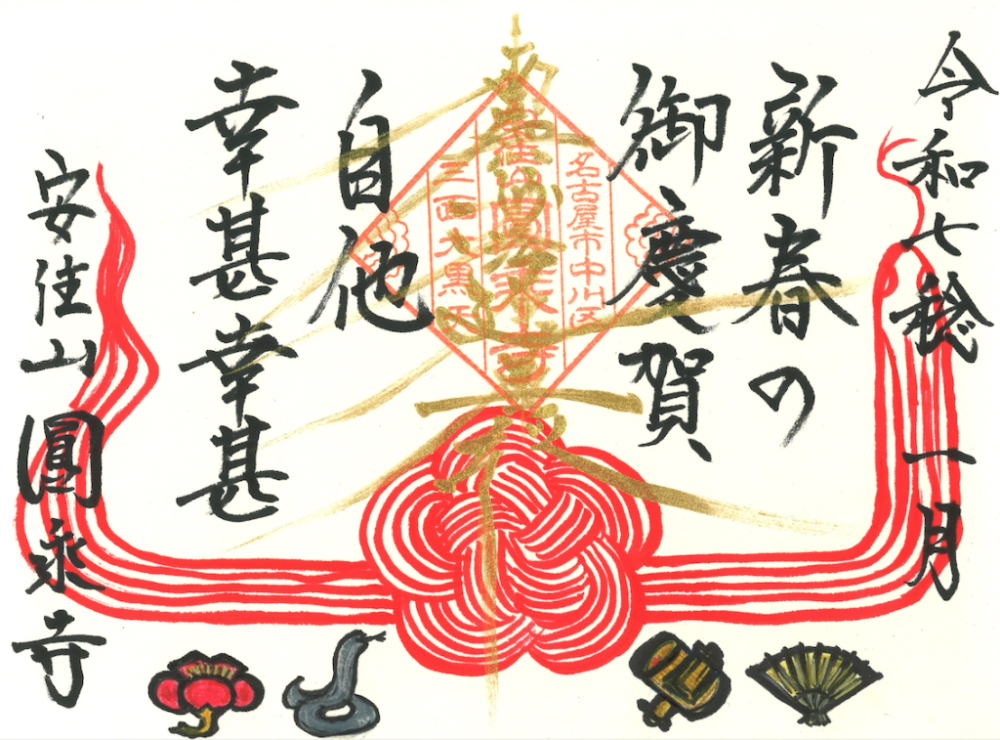 令和七稔 一月
新春の
御慶賀
自他
幸甚幸甚
安住山 圓永寺
名古屋市中川区
安住山圓永寺
三面大黒天